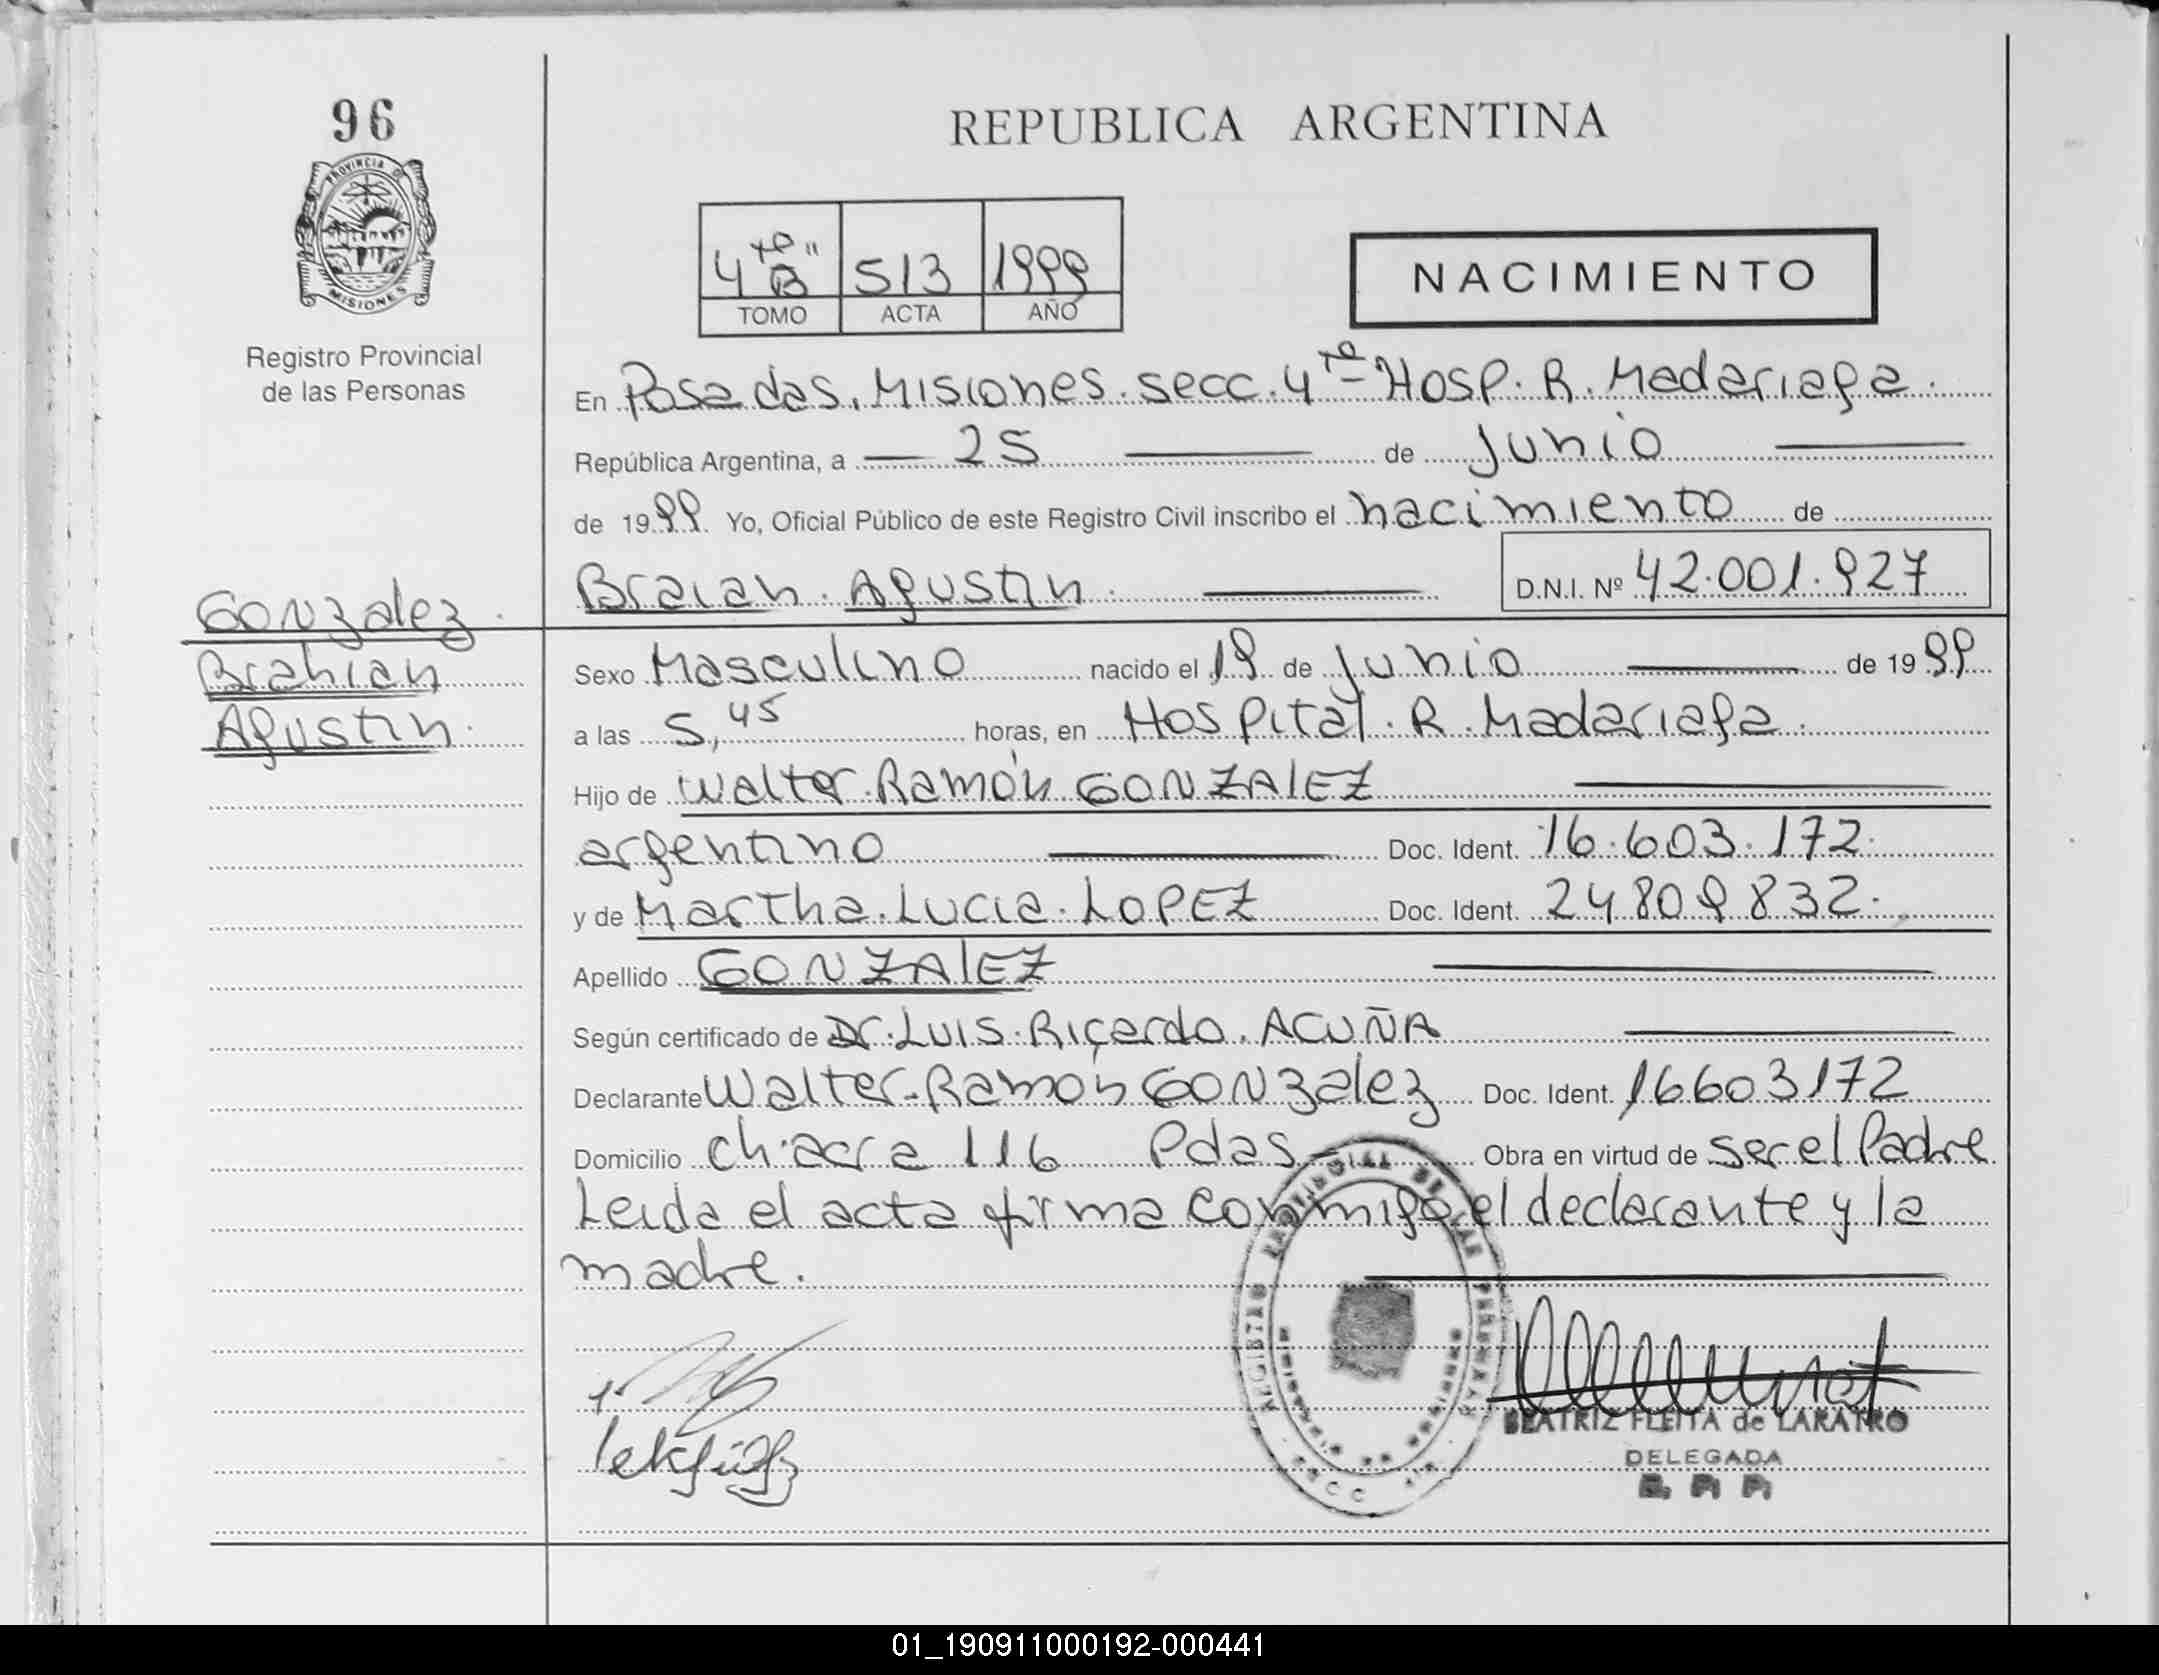 96
PROVINCIA DE
MISIONES
Registro Provincial
de las Personas
REPUBLICA ARGENTINA
4ta "B" 513 1999
TOMO ACTA AÑO
NACIMIENTO
En Posadas. Misiones. secc. 4ta Hosp. R. Madariaga.
República Argentina, a 25 de Junio
de 1999 Yo, Oficial Público de este Registro Civil inscribo el nacimiento de
Braian. Agustin. D.N.I. Nº 42.001.927
Gonzalez.
Brahian
Agustin.
Sexo Masculino nacido el 19 de Junio de 1999
a las 5,45 horas, en Hospital. R. Madariaga.
Hijo de Walter. Ramón GONZALEZ
argentino Doc. Ident. 16.603.172.
y de Martha. Lucia. LOPEZ Doc. Ident. 24809832.
Apellido GONZALEZ
Según certificado de Dr. Luis. Ricardo. ACUÑA
Declarante Walter. Ramón Gonzalez Doc. Ident. 16603172
Domicilio ch.acra 116 Pdas Obra en virtud de ser el Padre
Leida el acta firma conmigo el declarante y la
madre.
REGISTRO PROVINCIAL DE LAS PERSONAS
BEATRIZ FLEITA de LARATRO
DELEGADA
R. P. P.
01_190911000192-000441